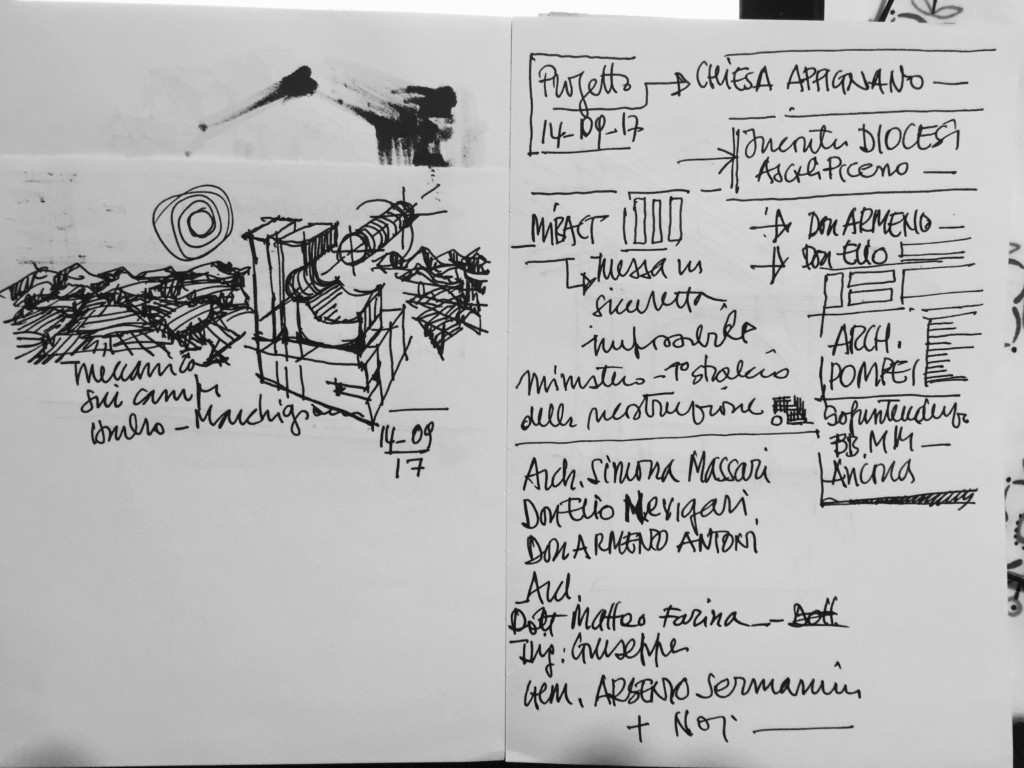 meccanico
sui campi
umbro - Marchigiano
14-09
17
Progetto
14-09-17
CHIESA APPIGNANO
Incontro DIOCESI
Ascoli Piceno
MiBACT
Messa in
sicurezza
impossibile
Ministero - 1° stralcio
della ricostruzione
Don ARMENO
Don Elio
ARCH.
POMPEI
BB. MM
Ancona
Arch. Simona Massari
Don Elio Nevigari
Don ARMENO ANTONI
Arch.
Dott Matteo Farina - Dott
Ing: Giuseppe
Gem. ARSENIO Sermanini
+ Noi